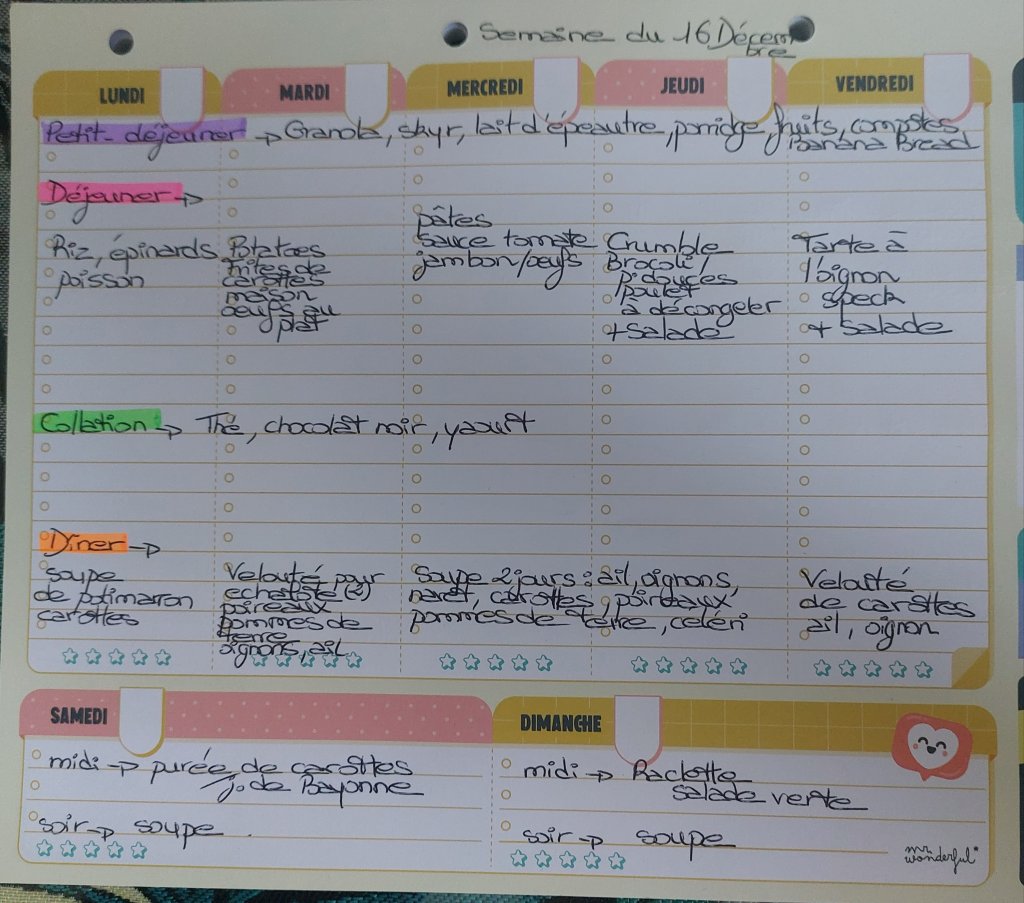 Semaine du 16 Décem
bre
LUNDI
MARDI
MERCREDI
JEUDI
VENDREDI
Petit-déjeuner → Granola, skyr, lait d'épeautre, porridge, fruits, compotes,
Banana Bread
Déjeuner →
Riz, épinards
poisson
Potatoes
frites de
carottes
maison
oeufs au
plat
pâtes
sauce tomate
jambon/oeufs
Crumble
Brocoli/
P. douces
/poulet
à décongeler
+ Salade
Tarte à
l'oignon
speck
+ Salade
Collation → Thé, chocolat noir, yaourt
Dîner →
soupe
de potimarron
carottes
Velouté pour
poireaux
pommes de
terre
oignons, ail
Soupe 2 jours : ail, oignons,
navet, carottes, poireaux
pommes de terre, celeri
Velouté
de carottes
ail, oignon
SAMEDI
midi → purée de carottes
j. de Bayonne
soir → soupe
DIMANCHE
midi → Raclette
salade verte
soir → soupe
mr.
wonderful*